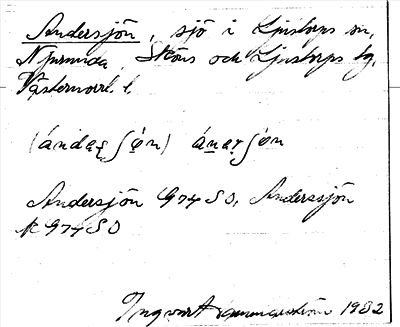 Andersjön, sjö i Ljustorps sn,
Njurunda, Sköns och Ljustorps tg,
Västernorrl. l.
(ándaʂ ʃø̀n) ánaʂʃøn
Andersjön G 974 SO, Andersjön
K 974 SO
Ingvart 1982